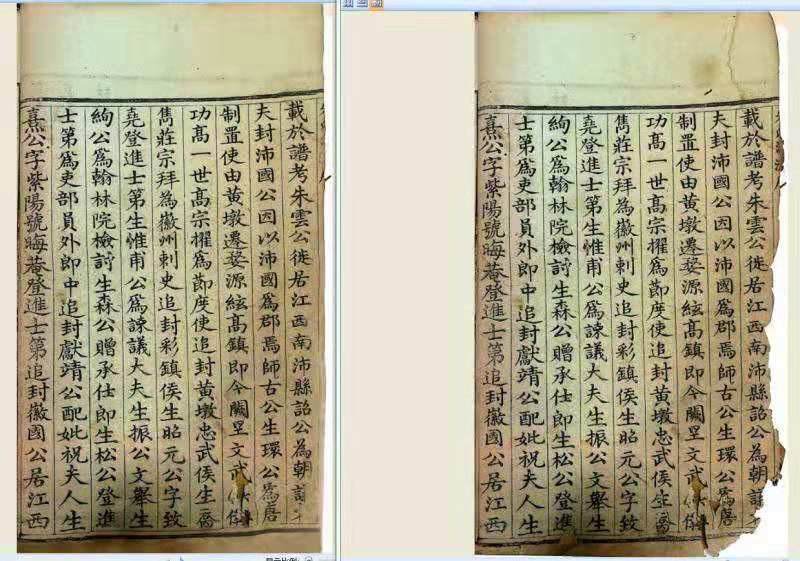 載於譜考朱雲公徙居江西南沛縣詔公為朝
夫封沛國公因以沛國爲郡焉師古公生環公爲唐
制置使由黃墩遷婺源絃高鎮即今闕里文武
功高一世高宗擢爲節度使追封黃墩忠武侯生
雋莊宗拜為徽州剌史追封彩鎮侯生昭元公字致
堯登進士第生惟甫公爲諫議大夫生振公文舉生
絢公爲翰林院檢討生森公贈承仕郎生松公登進
士第爲吏部員外郎中追封獻靖公配妣祝夫人生
熹公字紫陽號晦菴登進士第追封徽國公居江西
載於譜考朱雲公徙居江西南沛縣詔公為朝
夫封沛國公因以沛國爲郡焉師古公生環公爲唐
制置使由黃墩遷婺源絃高鎮即今闕里文武
功高一世高宗擢爲節度使追封黃墩忠武侯生
雋莊宗拜為徽州剌史追封彩鎮侯生昭元公字致
堯登進士第生惟甫公爲諫議大夫生振公文舉生
絢公爲翰林院檢討生森公贈承仕郎生松公登進
士第爲吏部員外郎中追封獻靖公配妣祝夫人生
熹公字紫陽號晦菴登進士第追封徽國公居江西